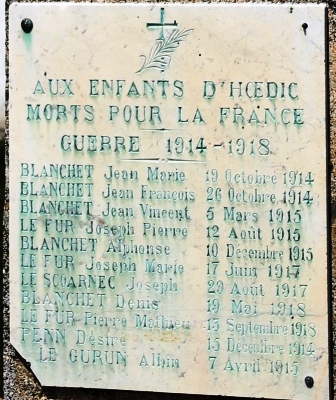 AUX ENFANTS D'HŒDIC
MORTS POUR LA FRANCE
GUERRE 1914-1918
BLANCHET Jean Marie 19 Octobre 1914
BLANCHET Jean François 26 Octobre 1914
BLANCHET Jean Vincent 5 Mars 1915
LE FUR Joseph Pierre 12 Août 1915
BLANCHET Alphonse 10 Décembre 1915
LE FUR Joseph Marie 17 Juin 1917
LE SCOARNEC Joseph 29 Août 1917
BLANCHET Denis 19 Mai 1918
LE FUR Pierre Mathieu 15 Septembre 1918
PENN Désiré 15 Décembre 1914
LE GURUN Albin 7 Avril 1915